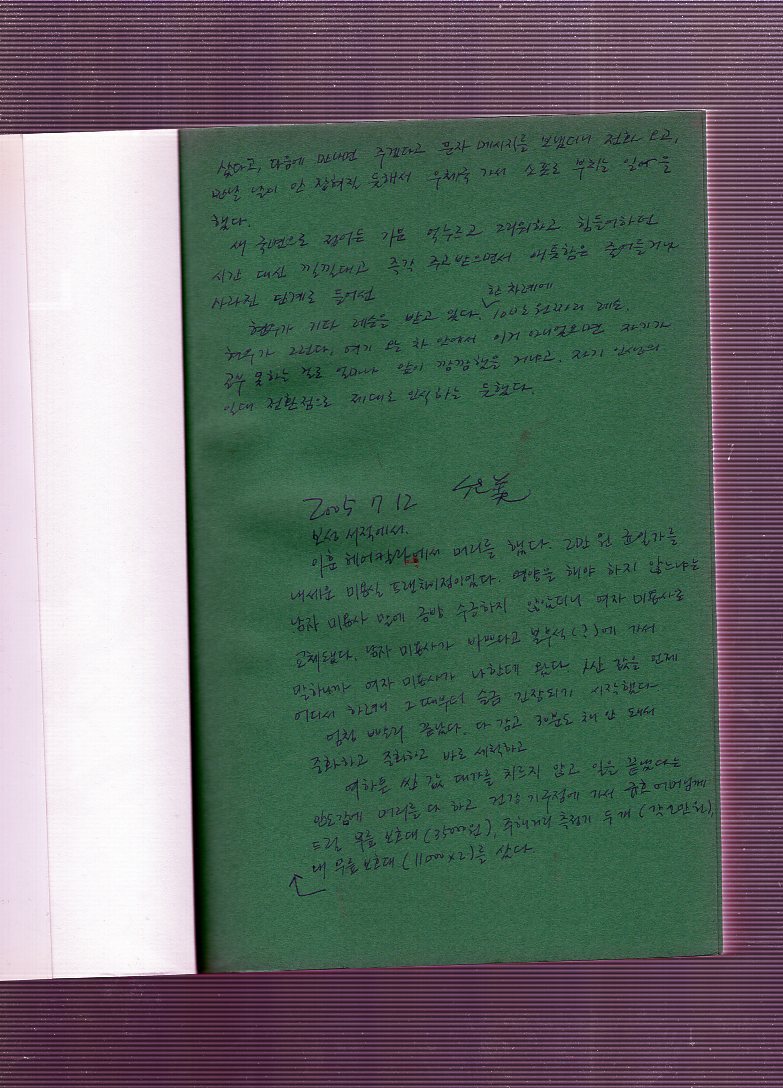 샀다고, 다음에 만나면 주겠다고 문자 메시지를 보냈더니 전화 오고,
만날 날이 안 잡혀질 듯해서 우체국 가서 소포로 부치는 일을
했다.
새 국면으로 접어든 기분 억누르고 그리워하고 힘들어하던
시간 대신 낄낄대고 즉각 주고받으면서 애틋함은 줄어들거나
사라진 단계로 들어선
한 차례에
현우가 기타 레슨을 받고 있다. 100으로 원짜리 레슨.
현우가 그런다. 여기 오는 차 안에서 이거 아니었으면 자기가
공부 못하는 걸로 얼마나 앞이 깜깜했을 거냐고. 자기 인생의
일대 전환점으로 제대로 인식하는 듯했다.
2005 7 12
보성 서적에서.
이훈 헤어칼라에서 머리를 했다. 2만 원 균일가를
내세운 미용실 프랜차이점이었다. 영양을 해야 하지 않느냐는
남자 미용사 말에 금방 수긍하지 않았더니 여자 미용사로
교체됐다. 남자 미용사가 바쁘다고 분무석(?)에 가서
말하니까 여자 미용사가 나한테 왔다 싼 값을 언제
어디서 하려나 그때부터 슬금 긴장되기 시작했다
엄청 빠르게 끝났다. 다 감고 30분도 채 안 돼서
중화하고 중화하고 바로 세척하고
여하튼 싼 값 대가를 치르지 않고 일을 끝냈다는
안도감에 머리를 다 하고 건강 기구점에 가서 어머님께
드릴 무릎 보호대 (3500원), 주행거리 측정기 두 개 (각 2만원),
내 무릎 보호대 (11000×2)를 샀다.